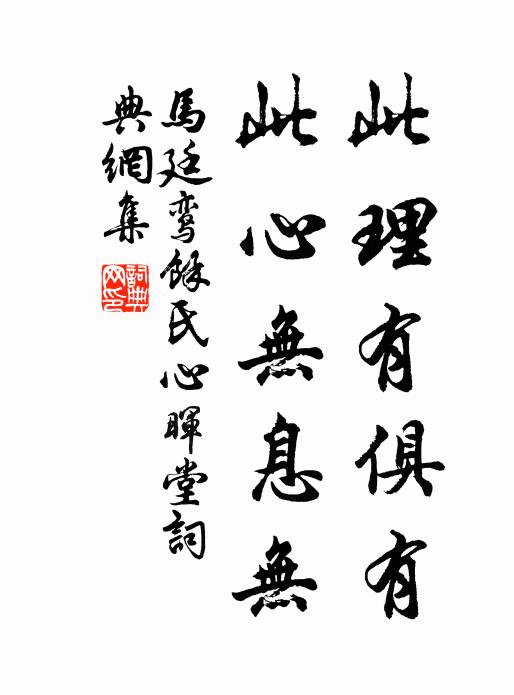 此理有俱有
此心無息無
馬廷鸞餘氏心暉堂詞
典網集
詞典
网印